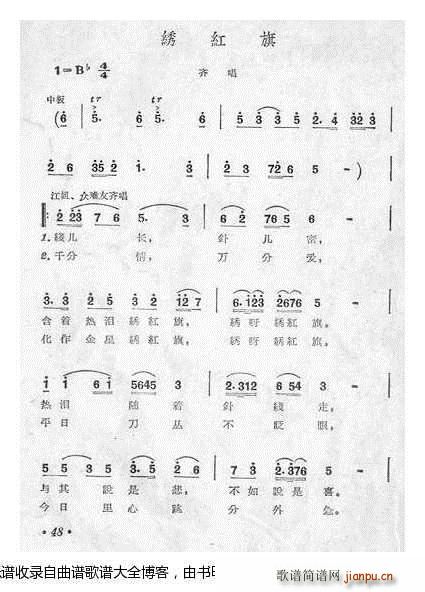 綉紅旗
1=B♭ 4/4
齐唱
中板 tr tr
(6 5. 6 5. 6 | 5 3 5 3 5 2. 4 3 2 3 |
2 6 3 5 2 1. 3 | 2 3 7 2 6 5 -) |
江姐、众难友齐唱
2 2 3 7 6 5. 3 | 6 2 7 6 5 6 - |
1.綫儿长，針儿密，
2.千分情，万分爱，
3. 3 2 5 3 2 1 2 7 | 6. 1 2 3 2 6 7 6 5 - |
含着热泪綉紅旗，綉呀綉紅旗。
化作金星綉紅旗，綉呀綉紅旗。
1 1 6 1 5 6 4 5 3 | 2. 3 1 2 6 5 4 3 - |
热泪随着針綫走，
平日刀丛不眨眼，
5 5 2 5 3. 5 2 6 | 7 3 2. 3 7 6 5 - |
与其說是悲，不如說是喜。
今日里心跳分外急。
·48·
谱收录自曲谱歌谱大全博客，由书
歌谱简谱网
jianpu.cn